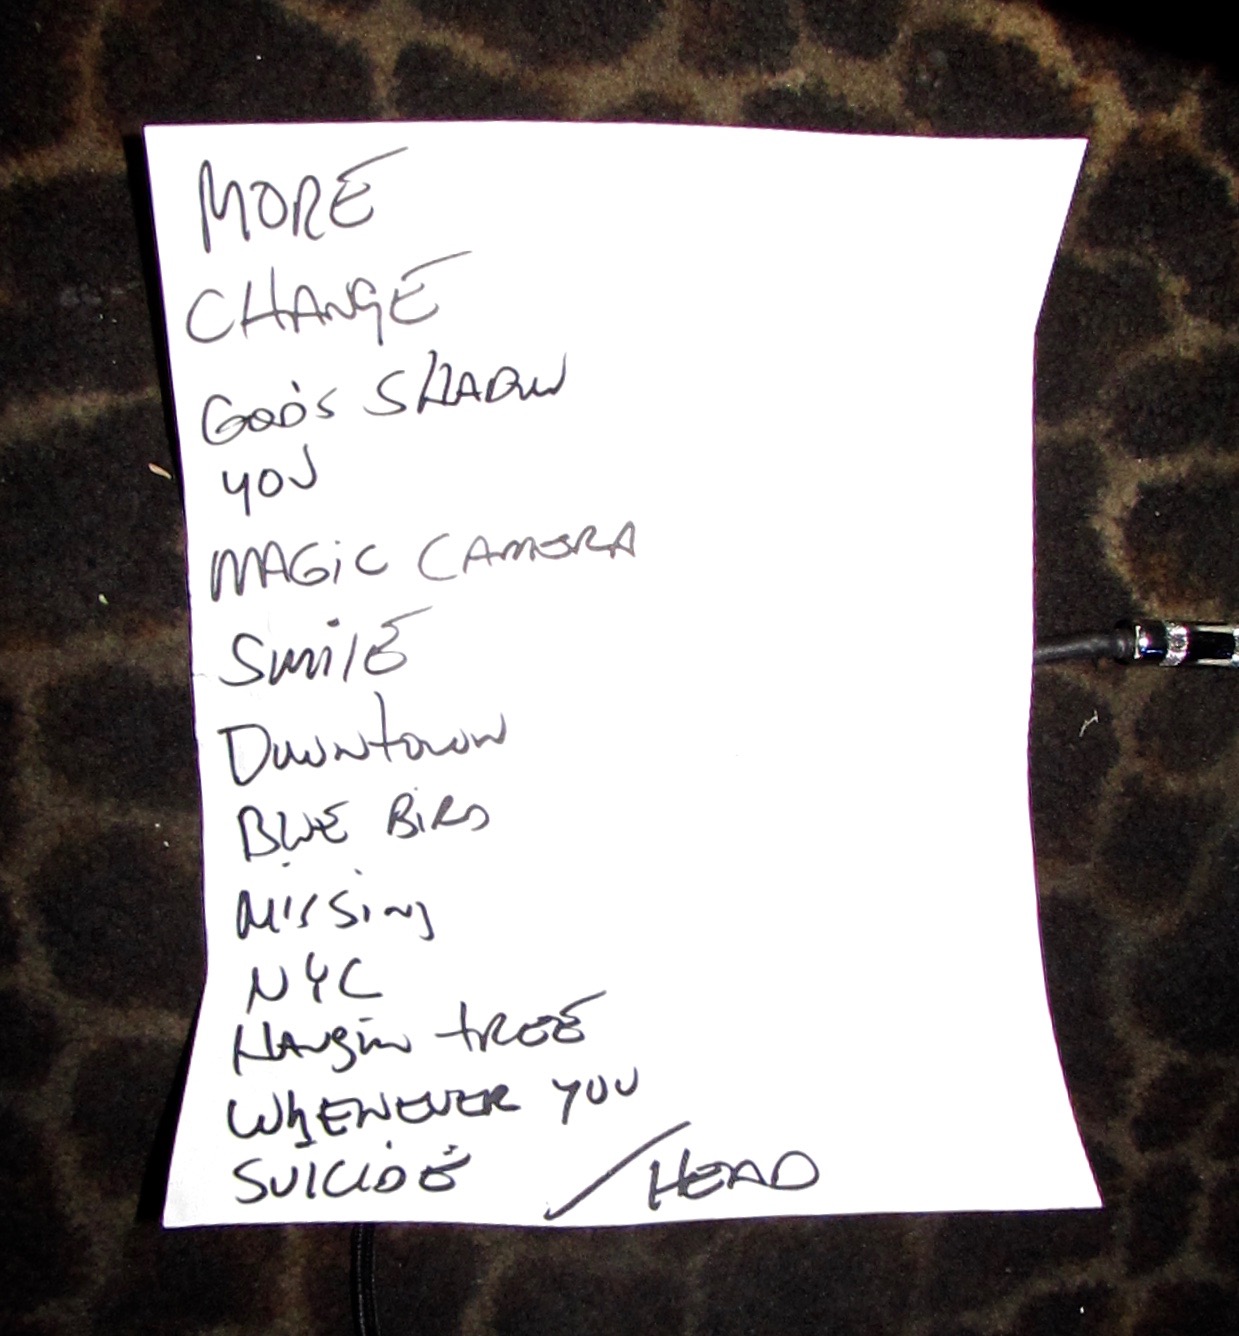 MORE
CHANGE
GOD'S SHADOW
YOU
MAGiC CAMERA
SMilE
Downtown
BLUE BiRD
Missing
NYC
HANgin tREE
WhENEVER YOU
SUiCiDE /HEAD